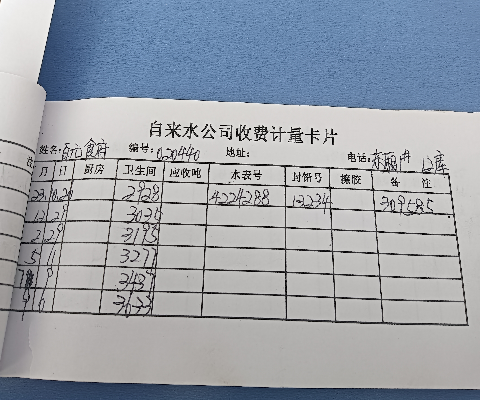 自来水公司收费计量卡片
姓名: 百元食府 编号: 020440 地址: 电话: 12库
月 日 厨房 卫生间 应收吨 水表号 封铅号 橡胶 备 注
23 10.20 2928 4224288 12234 309585
12 21 3035
2 29 3195
5 11 3277
7 8 3437
9 6 3633